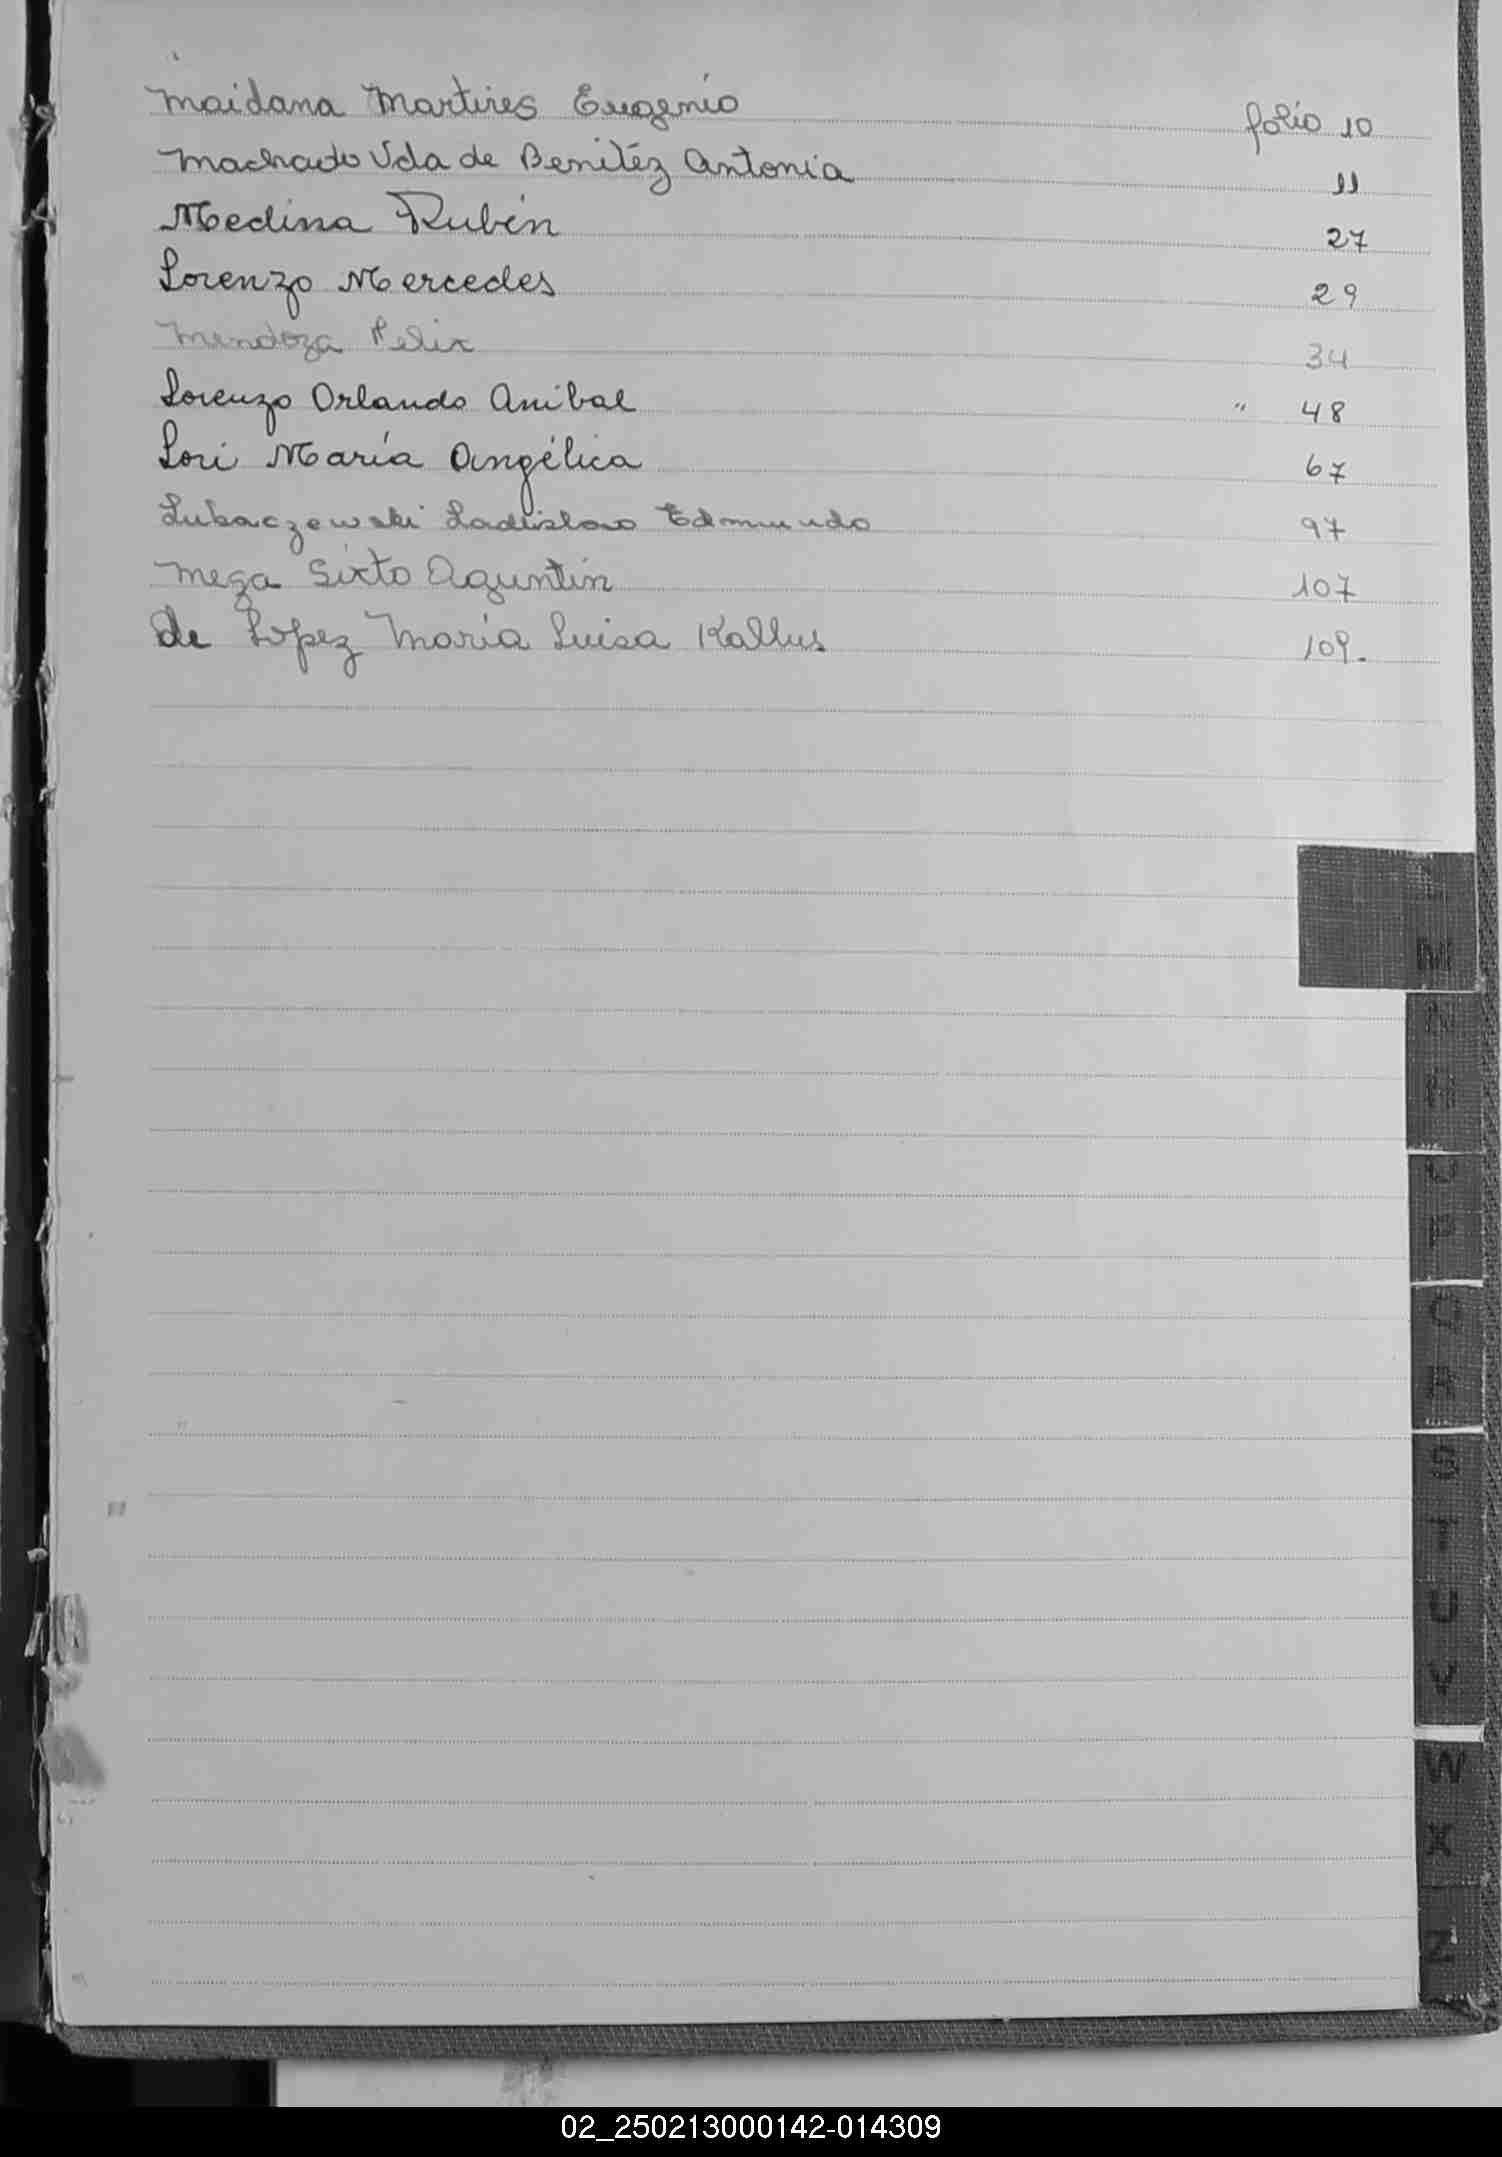 Maidana Martires Eugenio folio 10
Machado Vda de Benitéz Antonia 11
Medina Rubén 27
Lorenzo Mercedes 29
Mendoza Felix 34
Lorenzo Orlando Anibal " 48
Lori María Angélica 67
Lubaczewski Ladislao Edmundo 97
Meza Sixto Aguntín 107
de López María Luisa Kallus 109.
M
N
Ñ
O
P
Q
R
S
T
U
V
W
X
Z
02_250213000142-014309